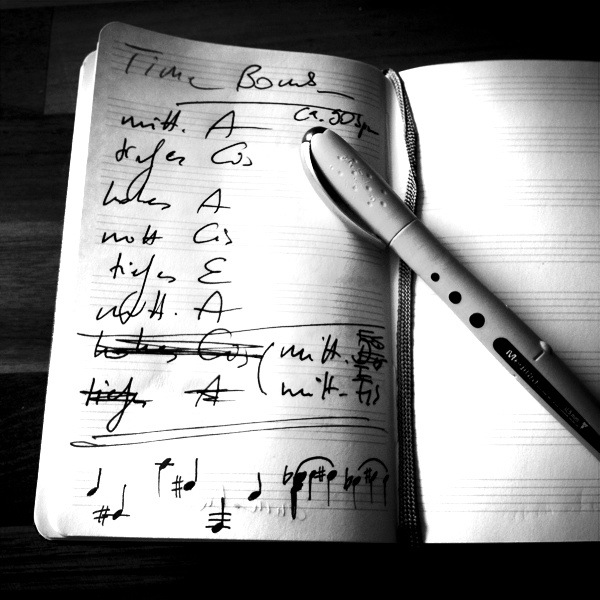 Time Bomb
mitt. A ca. 50 Bpm
tiefes Cis
hohes A
mitt Cis
tiefes E
mitt. A
hohes Cis (mitt.
tiefes A mitt. Fis